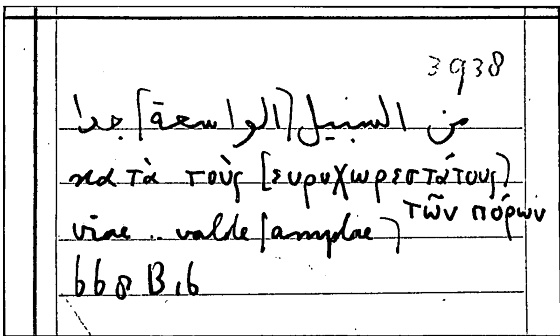 3938
من السبيل [الواسعة] جدا
κατὰ τοὺς [ευρυχωρεστάτους]
τῶν πόρων
viae .. valde [amplae]
668 B, 6